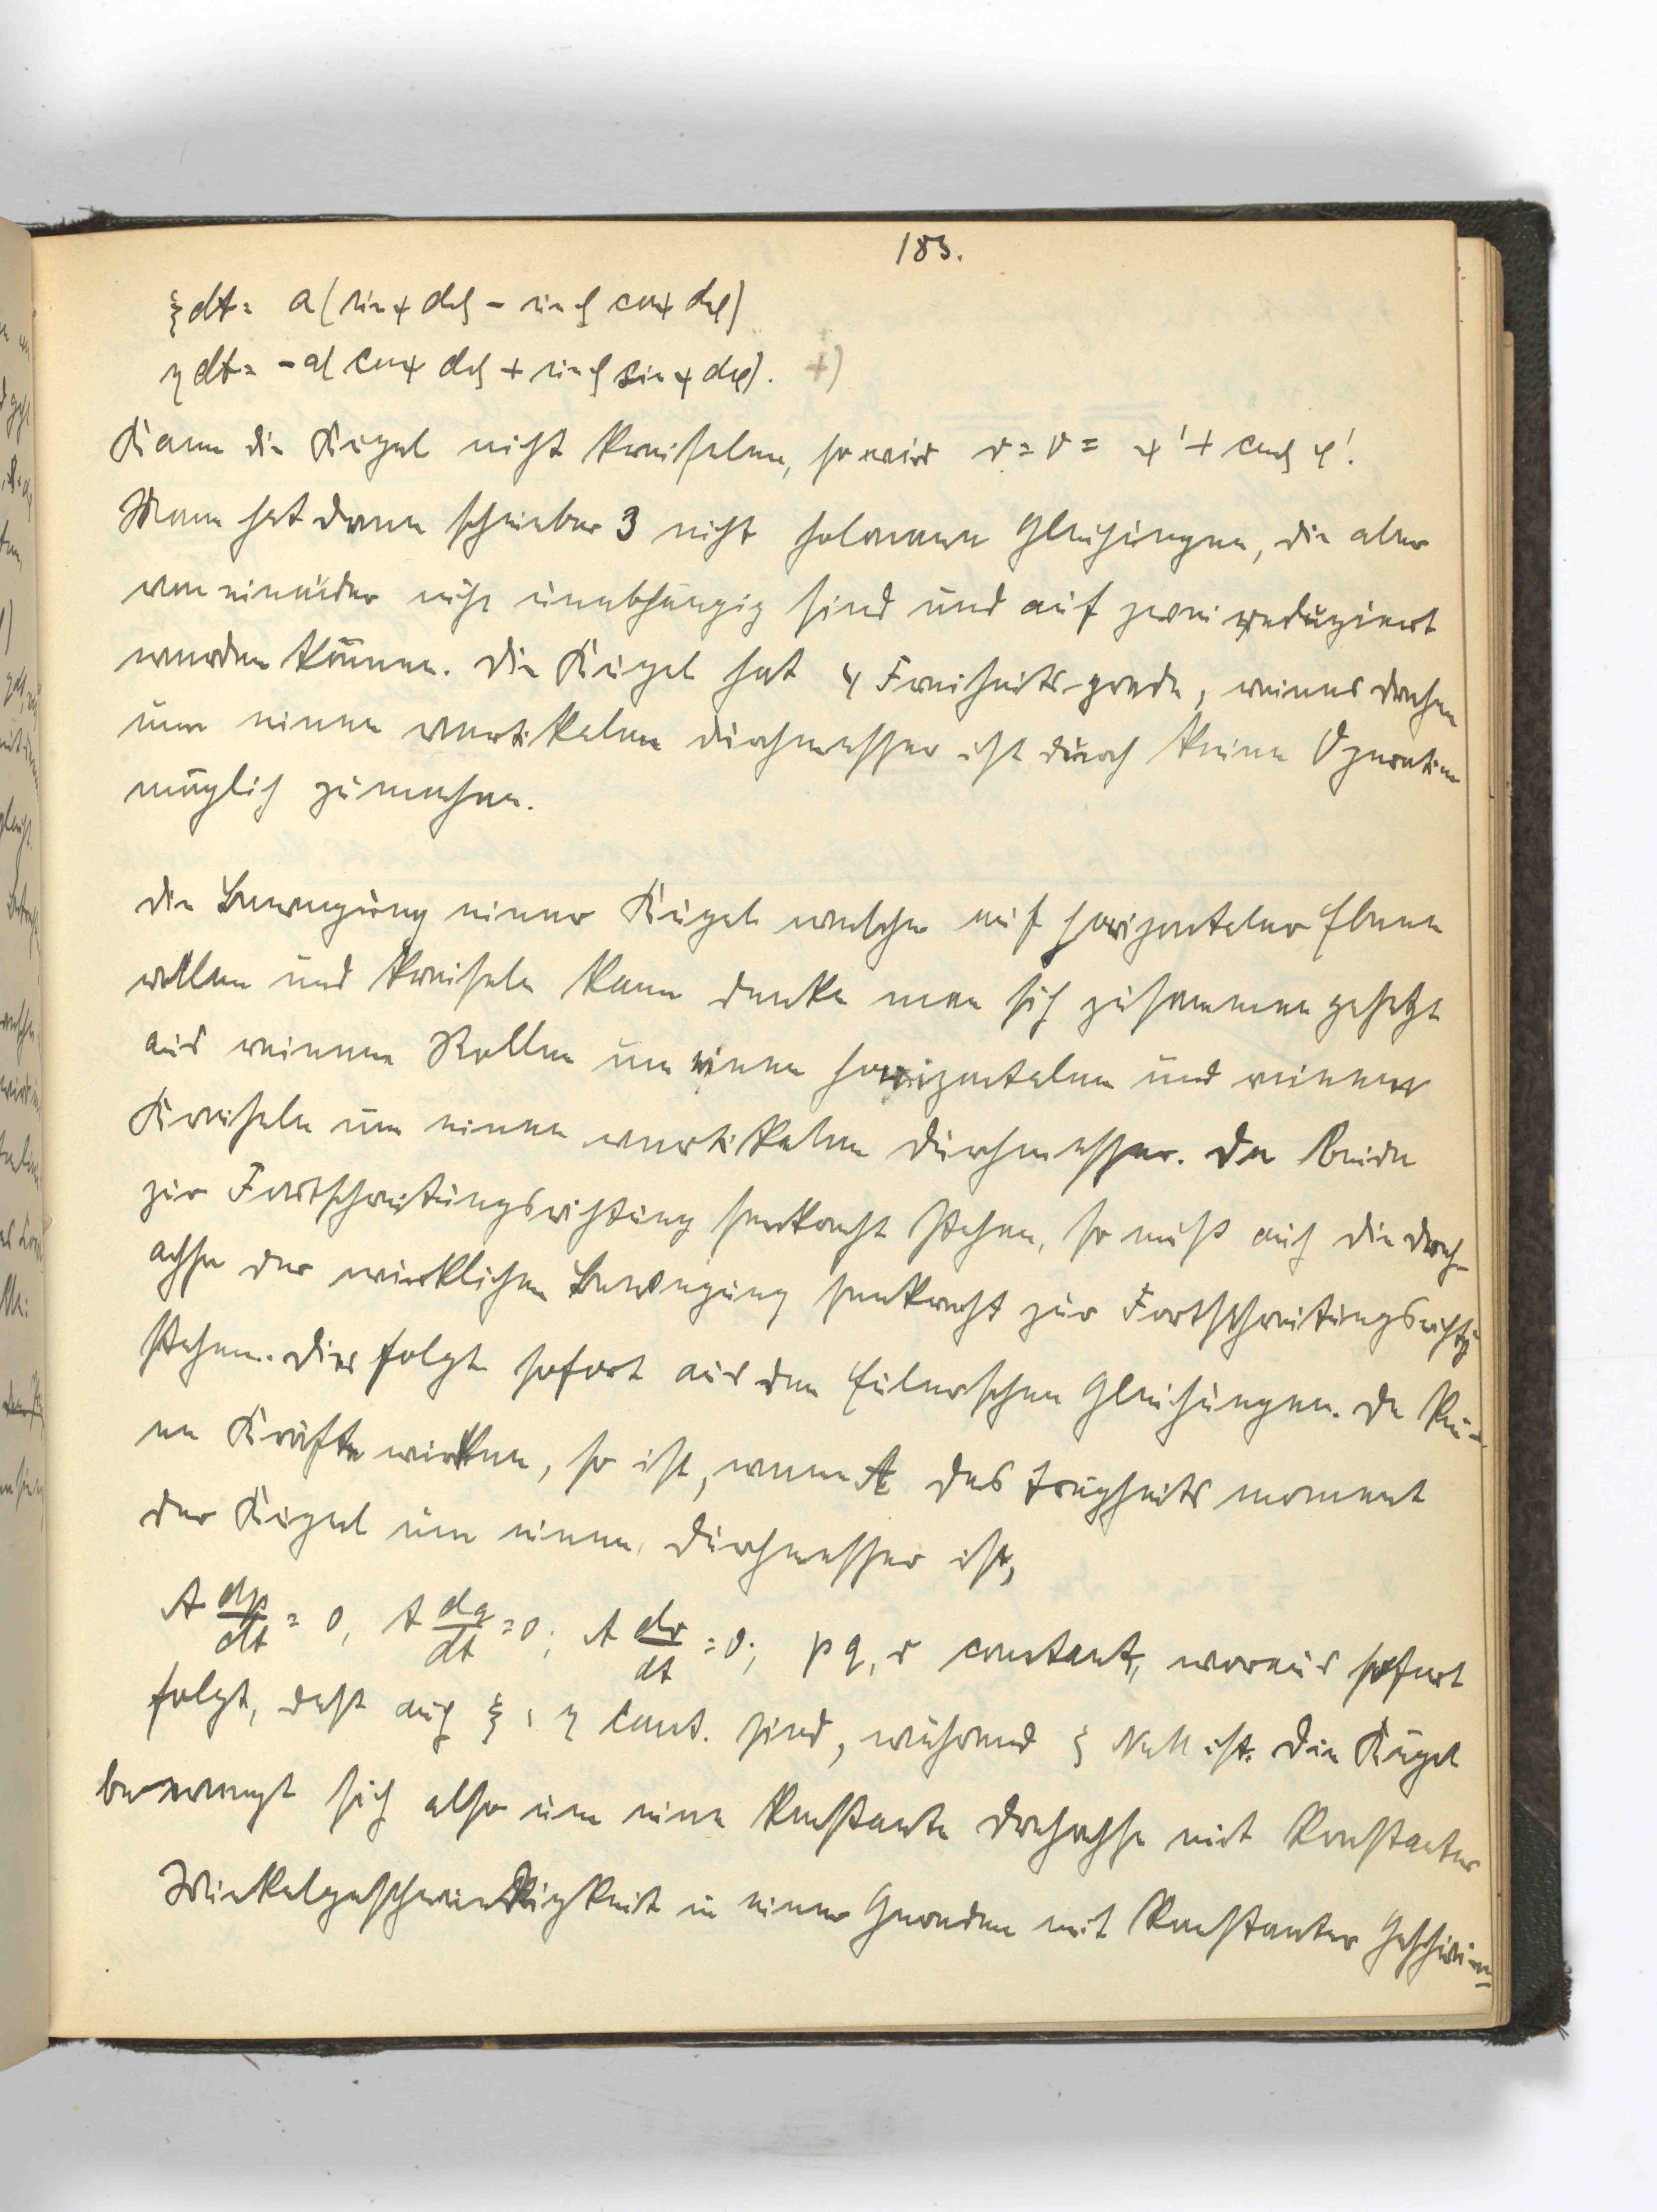 183.
ξdt = a(sinψ dϑ - sinϑ cosψ dφ)
ηdt = -a(cosψ dϑ + sinϑ sinψ dφ). +)
Kann die Kugel nicht kreiseln, so wird r = 0 = ψ' + cosϑ φ'.
Mann hat dann scheinbar 3 nicht holonome Gleichungen, die aber
von einander nicht unabhängig sind und auf zwei reduziert
werden können. Die Kugel hat 4 Freiheits-grade, reines drehen
um einen vertikalen Durchmesser ist durch keine Operation
möglich zu machen.
Die Bewegung einer Kugel welche auf horizontaler Ebene
rollen und kreiseln kann denke man sich zusammen gesetzt
aus reinem Rollen um einen horizontalen und reinem
Kreiseln um einen vertikalen Durchmesser. Da beide
zur Fortschreitungsrichtung senkrecht stehen, so muß auch die Dreh-
achse der wirklichen Bewegung senkrecht zur Fortschreitungsrichtg
stehen. Dies folgt sofort aus den Eulerschen Gleichungen. Da kei-
ne Kräfte wirken, so ist, wenn A das Trägheits moment
der Kugel um einen Durchmesser ist,
A dp/dt = 0, A dq/dt = 0; A dr/dt = 0; p q, r constant, woraus sofort
folgt, daß auch ξ, η const. sind, während ζ Null ist. Die Kugel
bewegt sich also um eine konstante Drehachse mit konstanter
Winkelgeschwindigkeit in einer Geraden mit konstanter Geschwin-